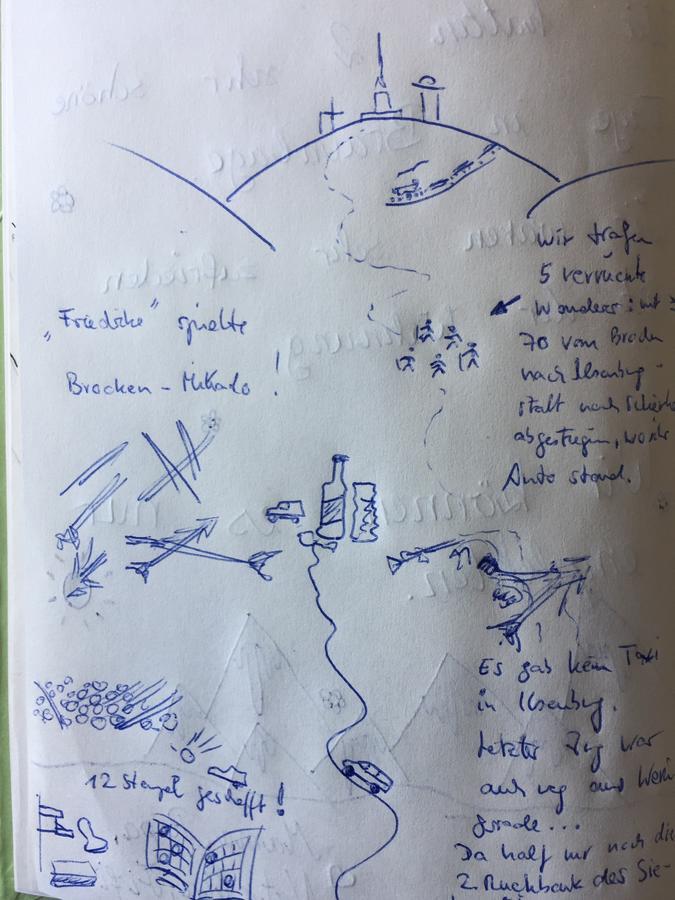 wir trafen
5 verrückte
Wanderer: mit
70 vom Brocken
nach Ilsenburg
statt nach Schierke
abgestiegen, wo ihr
Auto stand.
„Friederike" spielte
Brocken-Mikado!
Es gab kein Taxi
in Ilsenburg.
Letzter Zug war
auch weg aus Werni
gerode...
Da half nur noch die
2. Rückbank des Sie-
12 Stempel geschafft!